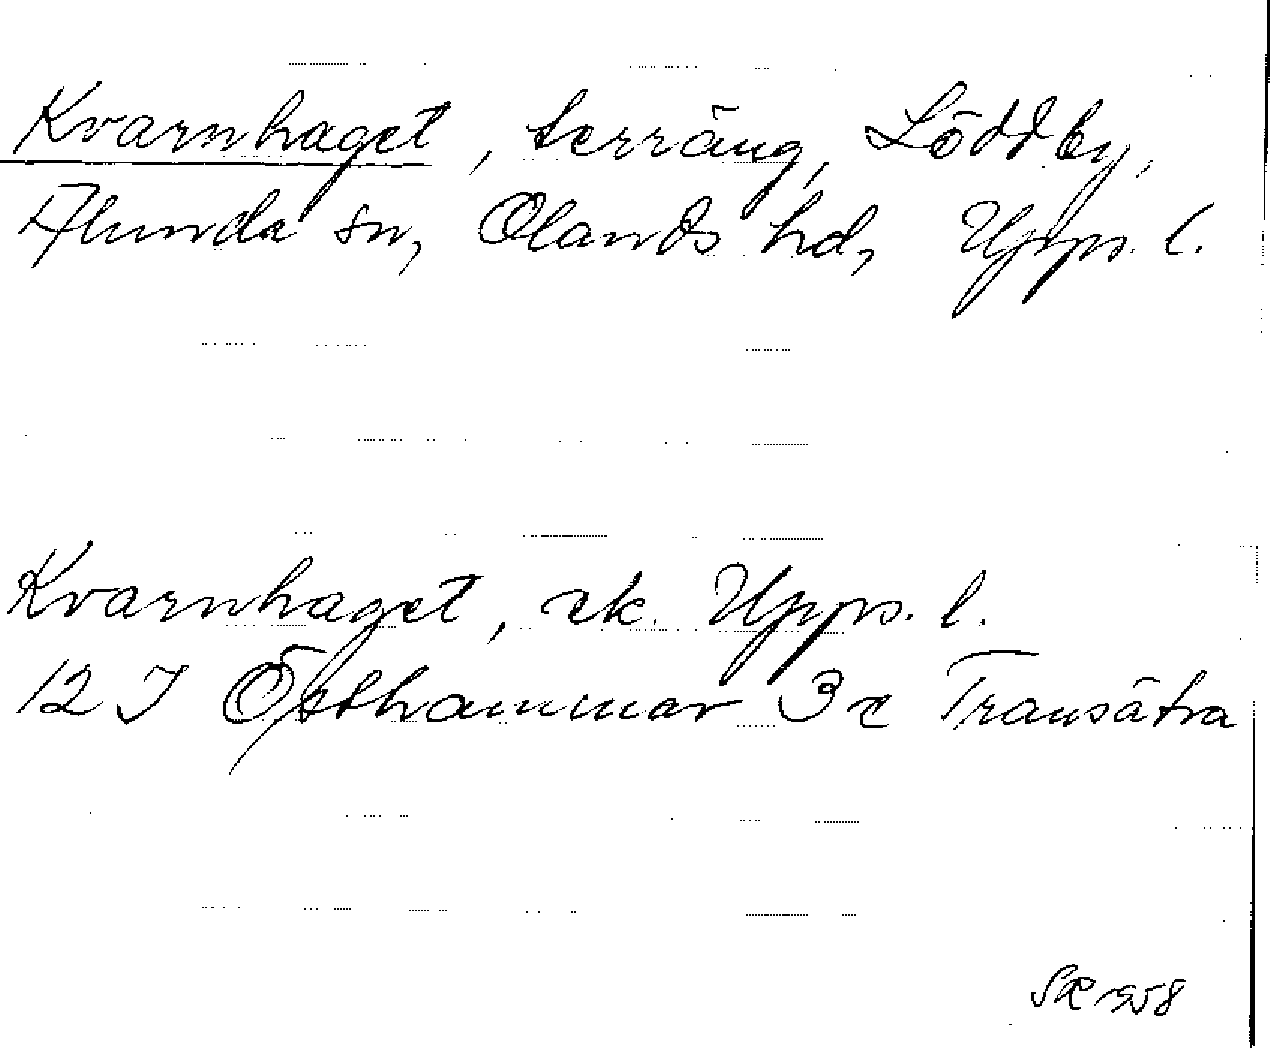 Kvarnhaget, terräng, Löddby,
Alunda sn, Olands hd, Upps. l.
Kvarnhaget, ek. Upps. l.
12 I Östhammar 3 c Transätra
1958